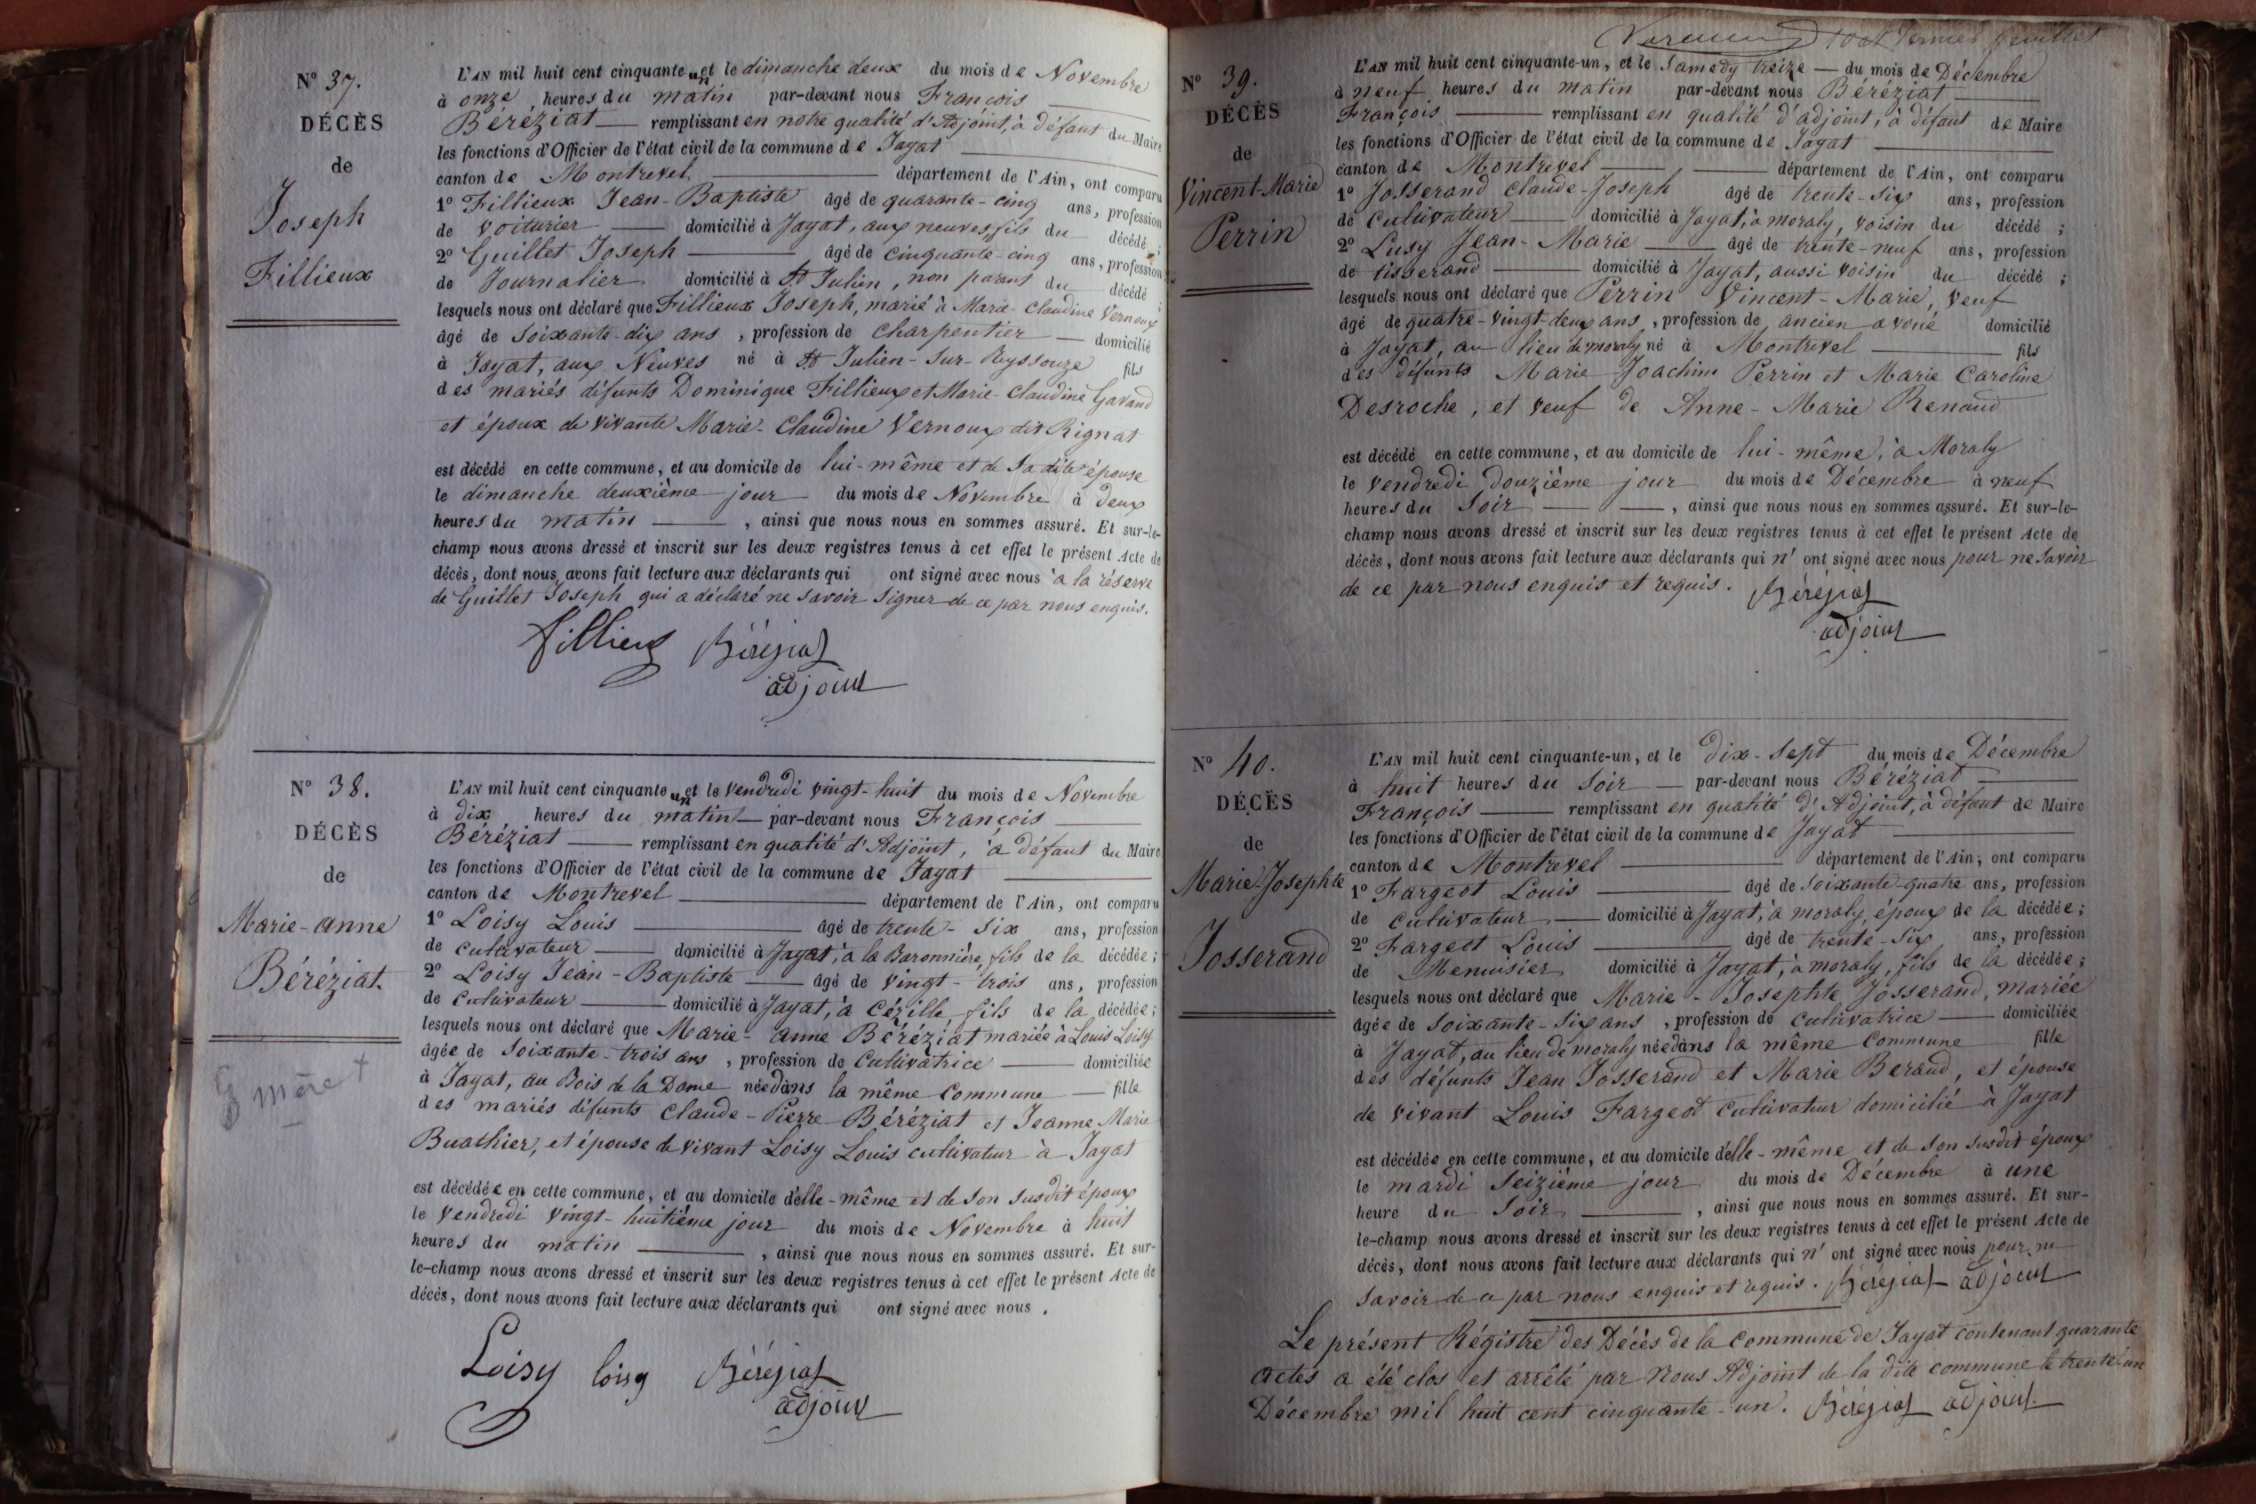 N° 37.
DÉCÈS
de
Joseph
Fillieux
L'AN mil huit cent cinquante un et le dimanche deux du mois de Novembre
à onze heures du matin par-devant nous François
Béréziat remplissant en notre qualité d'Adjoint, à défaut du Maire
les fonctions d'Officier de l'état civil de la commune de Jayat
canton de Montrevel département de l'Ain, ont comparu
1° Fillieux Jean-Baptiste âgé de quarante-cinq ans, profession
de voiturier domicilié à Jayat, aux neuves, fils du décédé ;
2° Guillet Joseph âgé de cinquante-cinq ans, profession
de Journalier domicilié à St Julien, non parent du décédé ;
lesquels nous ont déclaré que Fillieux Joseph, marié à Marie-Claudine Vernoux
âgé de soixante-dix ans, profession de charpentier domicilié
à Jayat, aux Neuves né à St Julien-sur-Reyssouze fils
des mariés défunts Dominique Fillieux et Marie-Claudine Gavand
et époux de vivante Marie-Claudine Vernoux dit Rignat
est décédé en cette commune, et au domicile de lui-même et de sa dite épouse
le dimanche deuxième jour du mois de Novembre à deux
heures du matin, ainsi que nous nous en sommes assuré. Et sur-le-
champ nous avons dressé et inscrit sur les deux registres tenus à cet effet le présent Acte de
décès, dont nous avons fait lecture aux déclarants qui ont signé avec nous à la réserve
de Guillet Joseph qui a déclaré ne savoir signer de ce par nous enquis.
Fillieux Béréziat
adjoint
N° 38.
DÉCÈS
de
Marie-anne
Béréziat.
mère +
L'AN mil huit cent cinquante un et le vendredi vingt-huit du mois de Novembre
à dix heures du matin par-devant nous François
Béréziat remplissant en qualité d'Adjoint, à défaut du Maire
les fonctions d'Officier de l'état civil de la commune de Jayat
canton de Montrevel département de l'Ain, ont comparu
1° Loisy Louis âgé de trente-six ans, profession
de cultivateur domicilié à Jayat, à la Baronnière, fils de la décédée ;
2° Loisy Jean-Baptiste âgé de vingt-trois ans, profession
de cultivateur domicilié à Jayat, à Cézille fils de la décédée ;
lesquels nous ont déclaré que Marie-anne Béréziat mariée à Louis Loisy
âgée de soixante-trois ans, profession de cultivatrice domiciliée
à Jayat, au Bois de la Dame née dans la même commune fille
des mariés défunts Claude-Pierre Béréziat et Jeanne Marie
Buathier, et épouse de vivant Loisy Louis cultivateur à Jayat
est décédée en cette commune, et au domicile d'elle-même et de son susdit époux
le vendredi vingt-huitième jour du mois de Novembre à huit
heures du matin, ainsi que nous nous en sommes assuré. Et sur-
le-champ nous avons dressé et inscrit sur les deux registres tenus à cet effet le présent Acte de
décès, dont nous avons fait lecture aux déclarants qui ont signé avec nous.
Loisy loisy Béréziat
adjoint
feuillet
N° 39.
DÉCÈS
de
Vincent-Marie
Perrin
L'AN mil huit cent cinquante-un, et le samedy treize du mois de Décembre
à neuf heures du matin par-devant nous Béréziat
François remplissant en qualité d'adjoint, à défaut de Maire
les fonctions d'Officier de l'état civil de la commune de Jayat
canton de Montrevel département de l'Ain, ont comparu
1° Josserand Claude-Joseph âgé de trente-six ans, profession
de cultivateur domicilié à Jayat, à moraly, voisin du décédé ;
2° Lusy Jean-Marie âgé de trente-neuf ans, profession
de tisserand domicilié à Jayat, aussi voisin du décédé ;
lesquels nous ont déclaré que Perrin Vincent-Marie, veuf
âgé de quatre-vingt-deux ans, profession de ancien avoué domicilié
à Jayat, au lieu de moraly né à Montrevel fils
des défunts Marie Joachim Perrin et Marie Caroline
Desroche, et veuf de Anne-Marie Renaud
est décédé en cette commune, et au domicile de lui-même, à Moraly
le vendredi douzième jour du mois de Décembre à neuf
heures du soir, ainsi que nous nous en sommes assuré. Et sur-le-
champ nous avons dressé et inscrit sur les deux registres tenus à cet effet le présent Acte de
décès, dont nous avons fait lecture aux déclarants qui n'ont signé avec nous pour ne savoir
de ce par nous enquis et requis. Béréziat
adjoint
N° 40.
DÉCÈS
de
Marie-Josephte
Josserand
L'AN mil huit cent cinquante-un, et le dix-sept du mois de Décembre
à huit heures du soir par-devant nous Béréziat
François remplissant en qualité d'Adjoint, à défaut de Maire
les fonctions d'Officier de l'état civil de la commune de Jayat
canton de Montrevel département de l'Ain, ont comparu
1° Fargeot Louis âgé de soixante-quatre ans, profession
de cultivateur domicilié à Jayat, à moraly, époux de la décédée ;
2° Fargeot Louis âgé de trente-six ans, profession
de Menuisier domicilié à Jayat, à moraly, fils de la décédée ;
lesquels nous ont déclaré que Marie-Josephte Josserand, mariée
âgée de soixante-six ans, profession de cultivatrice domiciliée
à Jayat, au lieu de moraly née dans la même commune fille
des défunts Jean Josserand et Marie Beraud, et épouse
de vivant Louis Fargeot cultivateur domicilié à Jayat
est décédée en cette commune, et au domicile d'elle-même et de son susdit époux
le mardi seizième jour du mois de Décembre à une
heure du soir, ainsi que nous nous en sommes assuré. Et sur-
le-champ nous avons dressé et inscrit sur les deux registres tenus à cet effet le présent Acte de
décès, dont nous avons fait lecture aux déclarants qui n'ont signé avec nous pour ne
savoir de ce par nous enquis et requis. Béréziat adjoint
Le présent Régistre des Décès de la commune de Jayat contenant quarante
actes a été clos et arrêté par Nous Adjoint de la dite commune le trente un
Décembre mil huit cent cinquante-un. Béréziat adjoint